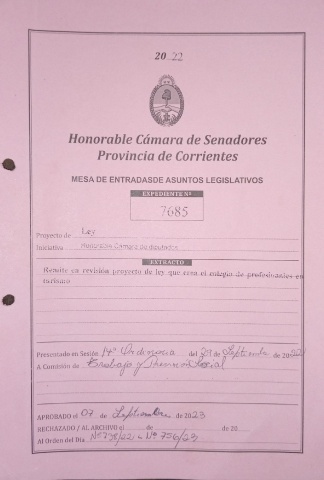 20 22
Honorable Cámara de Senadores
Provincia de Corrientes
MESA DE ENTRADAS DE ASUNTOS LEGISLATIVOS
EXPEDIENTE Nº
7685
Proyecto de Ley
Iniciativa Honorable Cámara de diputados
EXTRACTO
Remite en revisión proyecto de ley que crea el colegio de profesionales en
turismo
Presentado en Sesión 14º Ordinaria del 29 Septiembre de 20
A Comisión de Trabajo y Previsión Social
APROBADO el 07 de Septiembre de 2023
RECHAZADO / AL ARCHIVO el de de 20
Al Orden del Día Nº 738/22 Nº 756/23